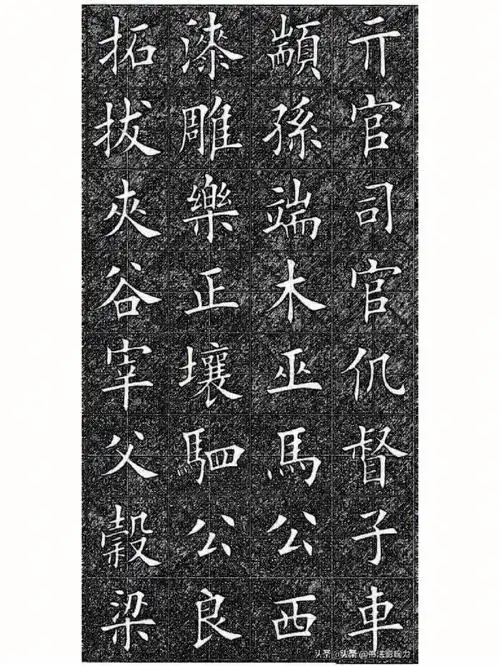 亓官司官仉督子車
顓孫端木巫馬公西
漆雕樂正壤駟公良
拓拔夾谷宰父穀梁
头条 @书法影响力